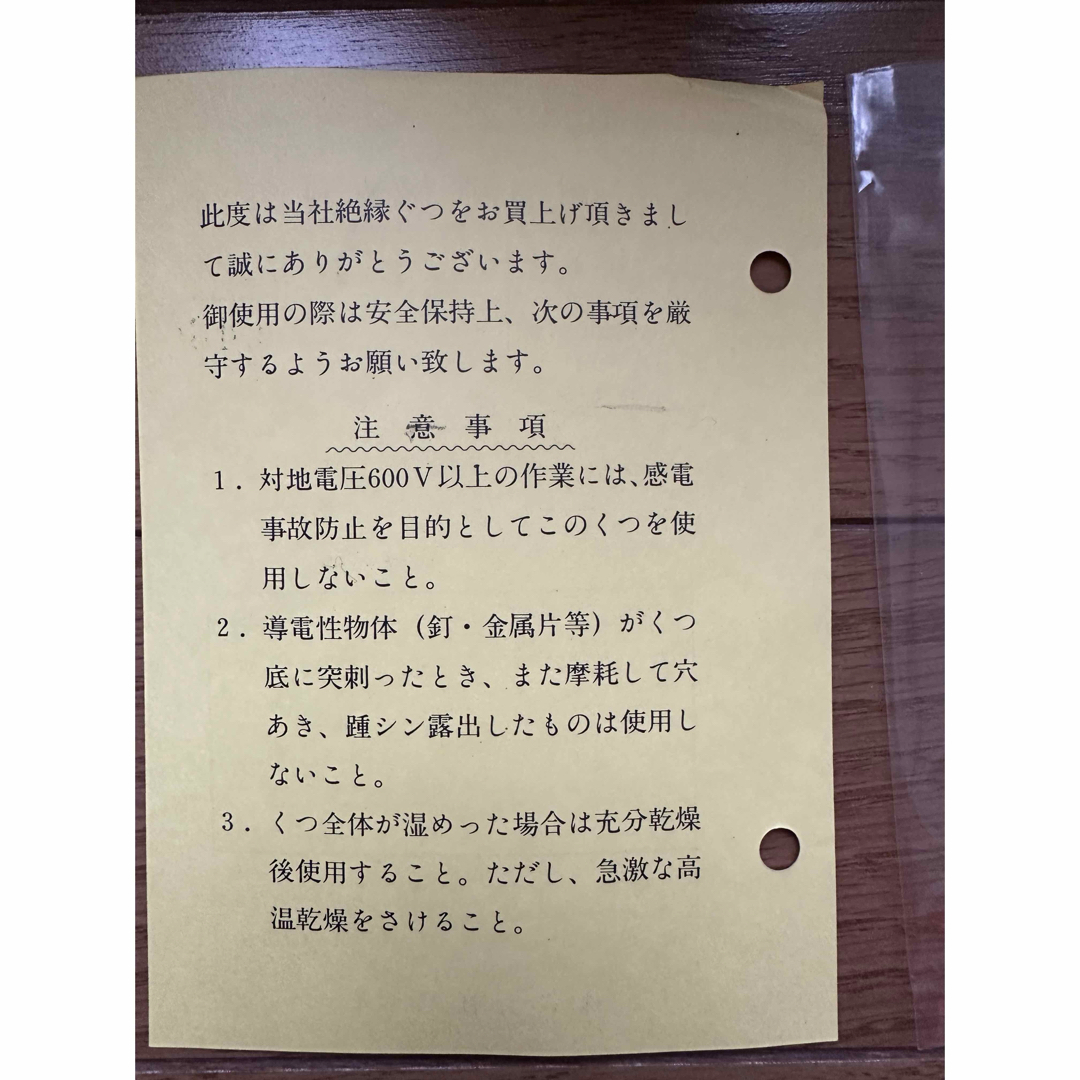 此度は当社絶縁ぐつをお買上げ頂きまし
て誠にありがとうございます。
御使用の際は安全保持上、次の事項を厳
守するようお願い致します。
注意事項
1．対地電圧600V以上の作業には、感電
事故防止を目的としてこのくつを使
用しないこと。
2．導電性物体（釘・金属片等）がくつ
底に突刺ったとき、また摩耗して穴
あき、踵シン露出したものは使用し
ないこと。
3．くつ全体が湿めった場合は充分乾燥
後使用すること。ただし、急激な高
温乾燥をさけること。